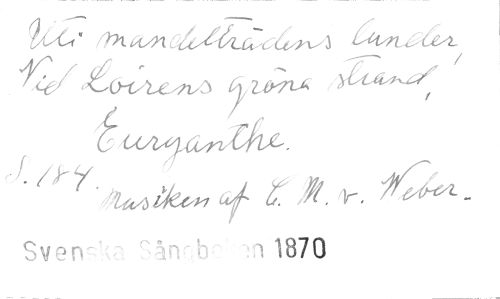 Uti mandelträdens lunder,
Vid Loirens gröna strand,
Euryanthe.
S. 184.
Musiken af C. M. v. Weber.
Svenska Sångboken 1870